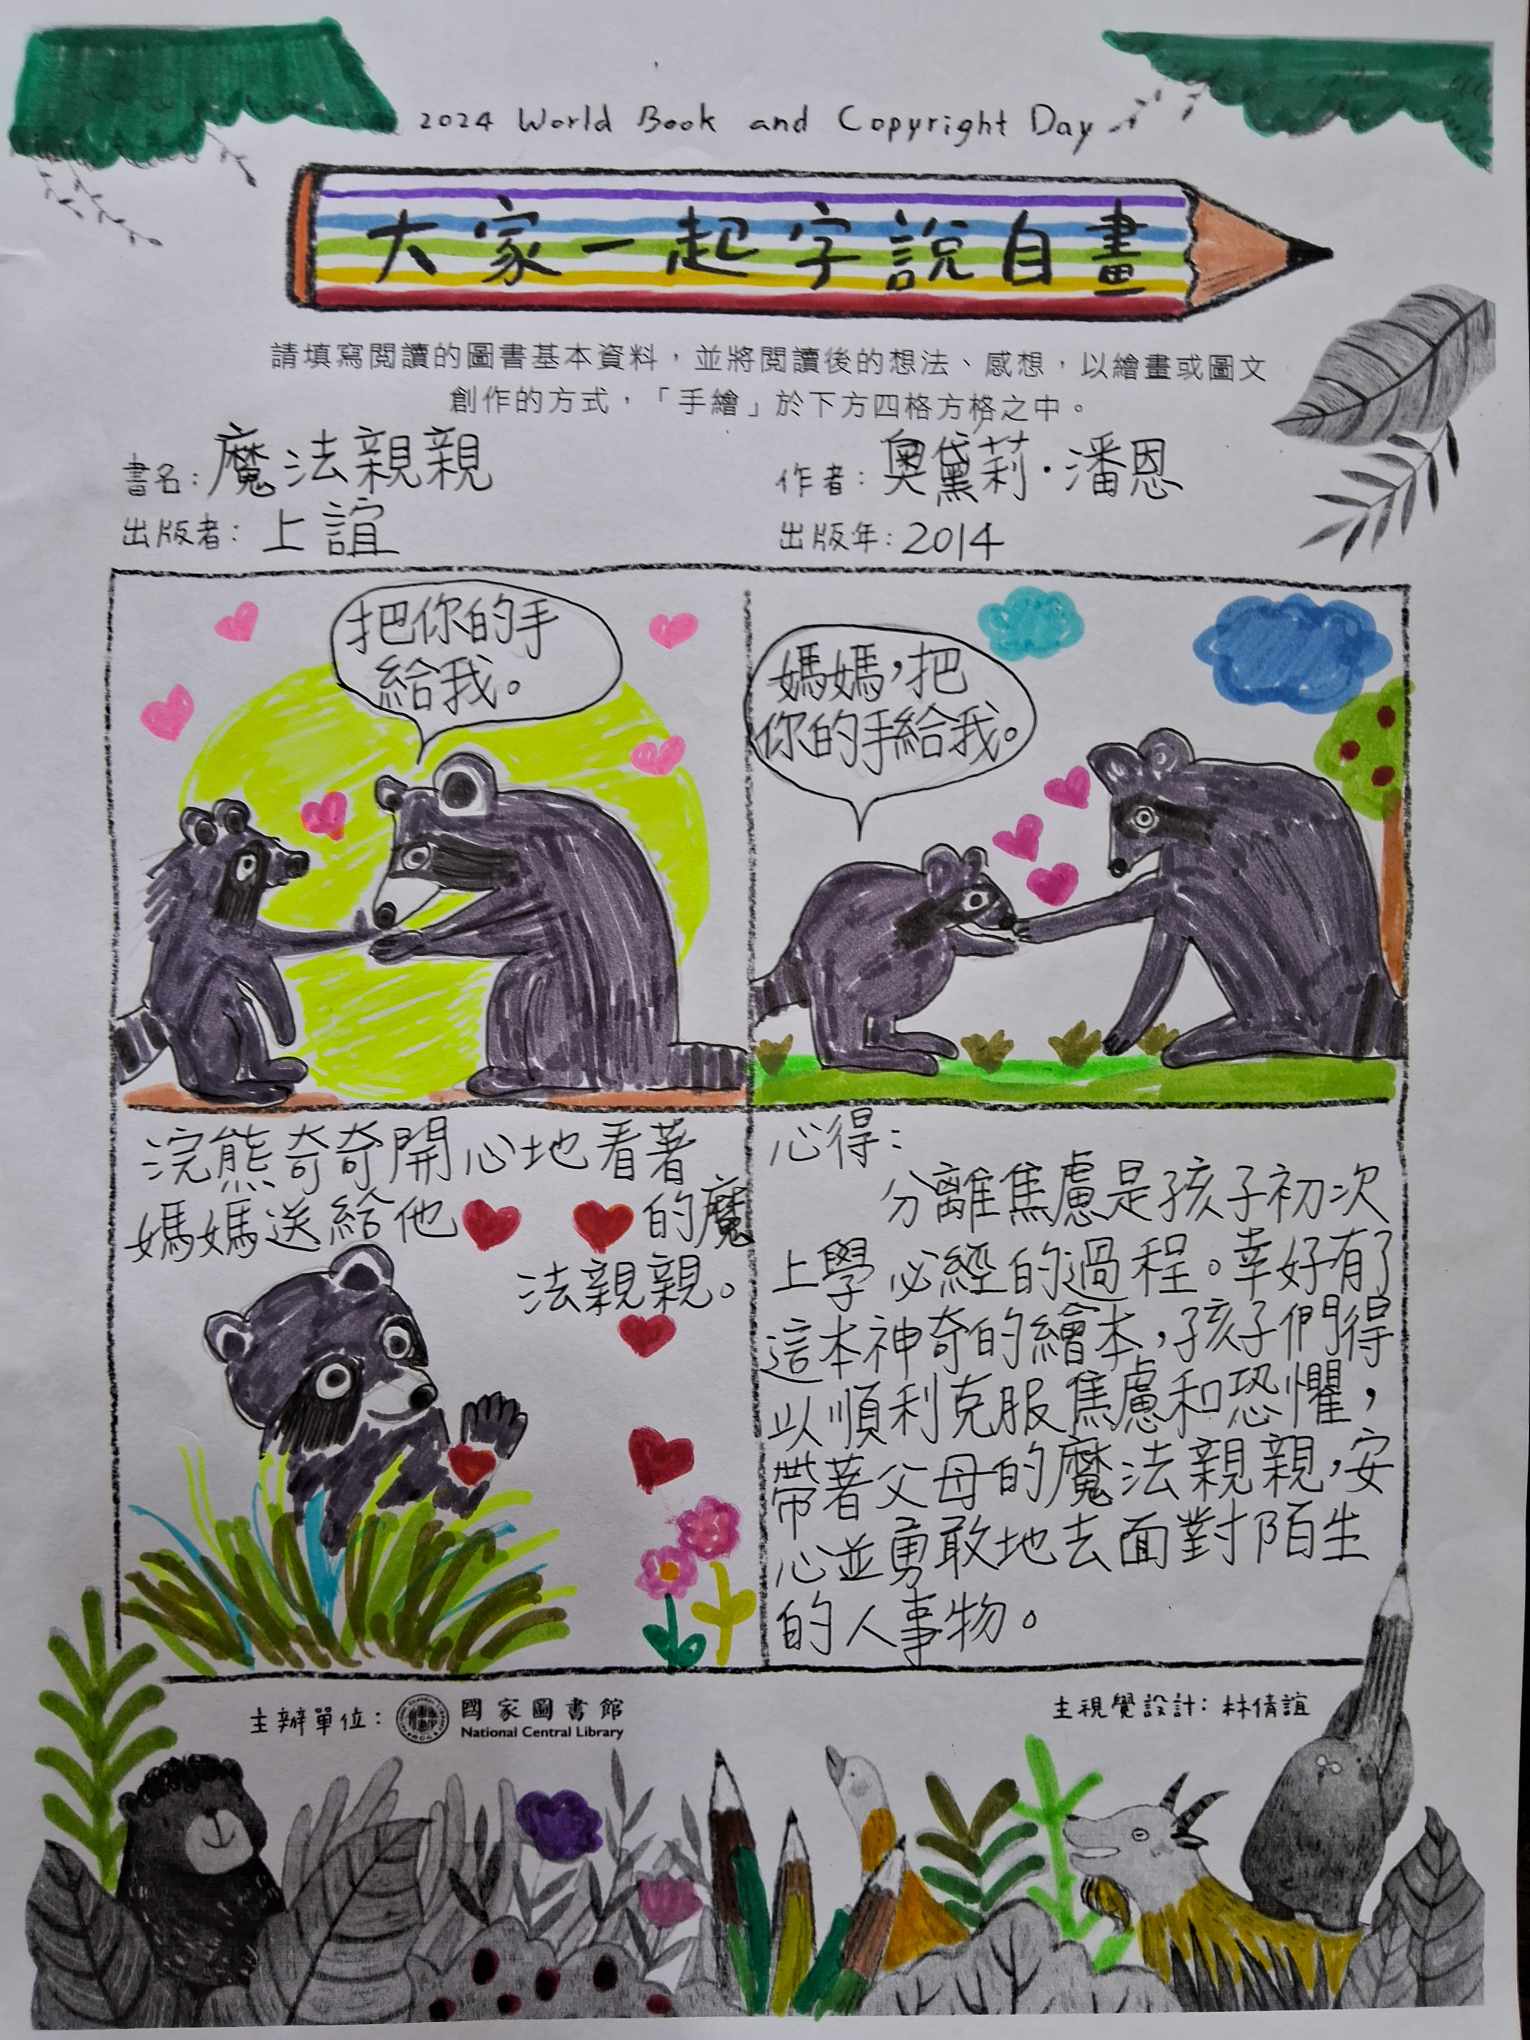 2024 World Book and Copyright Day
大家一起字說自畫
請填寫閱讀的圖書基本資料，並將閱讀後的想法、感想，以繪畫或圖文
創作的方式，「手繪」於下方四格方格之中。
書名：魔法親親
作者：奧黛莉·潘恩
出版者：上誼
出版年：2014
把你的手
給我。
媽媽，把
你的手給我。
浣熊奇奇開心地看著
媽媽送給他 的魔
法親親。
心得：
分離焦慮是孩子初次
上學必經的過程。幸好有了
這本神奇的繪本，孩子們得
以順利克服焦慮和恐懼，
帶著父母的魔法親親，安
心並勇敢地去面對陌生
的人事物。
主辦單位：
國家圖書館
National Central Library
主視覺設計：林倩誼